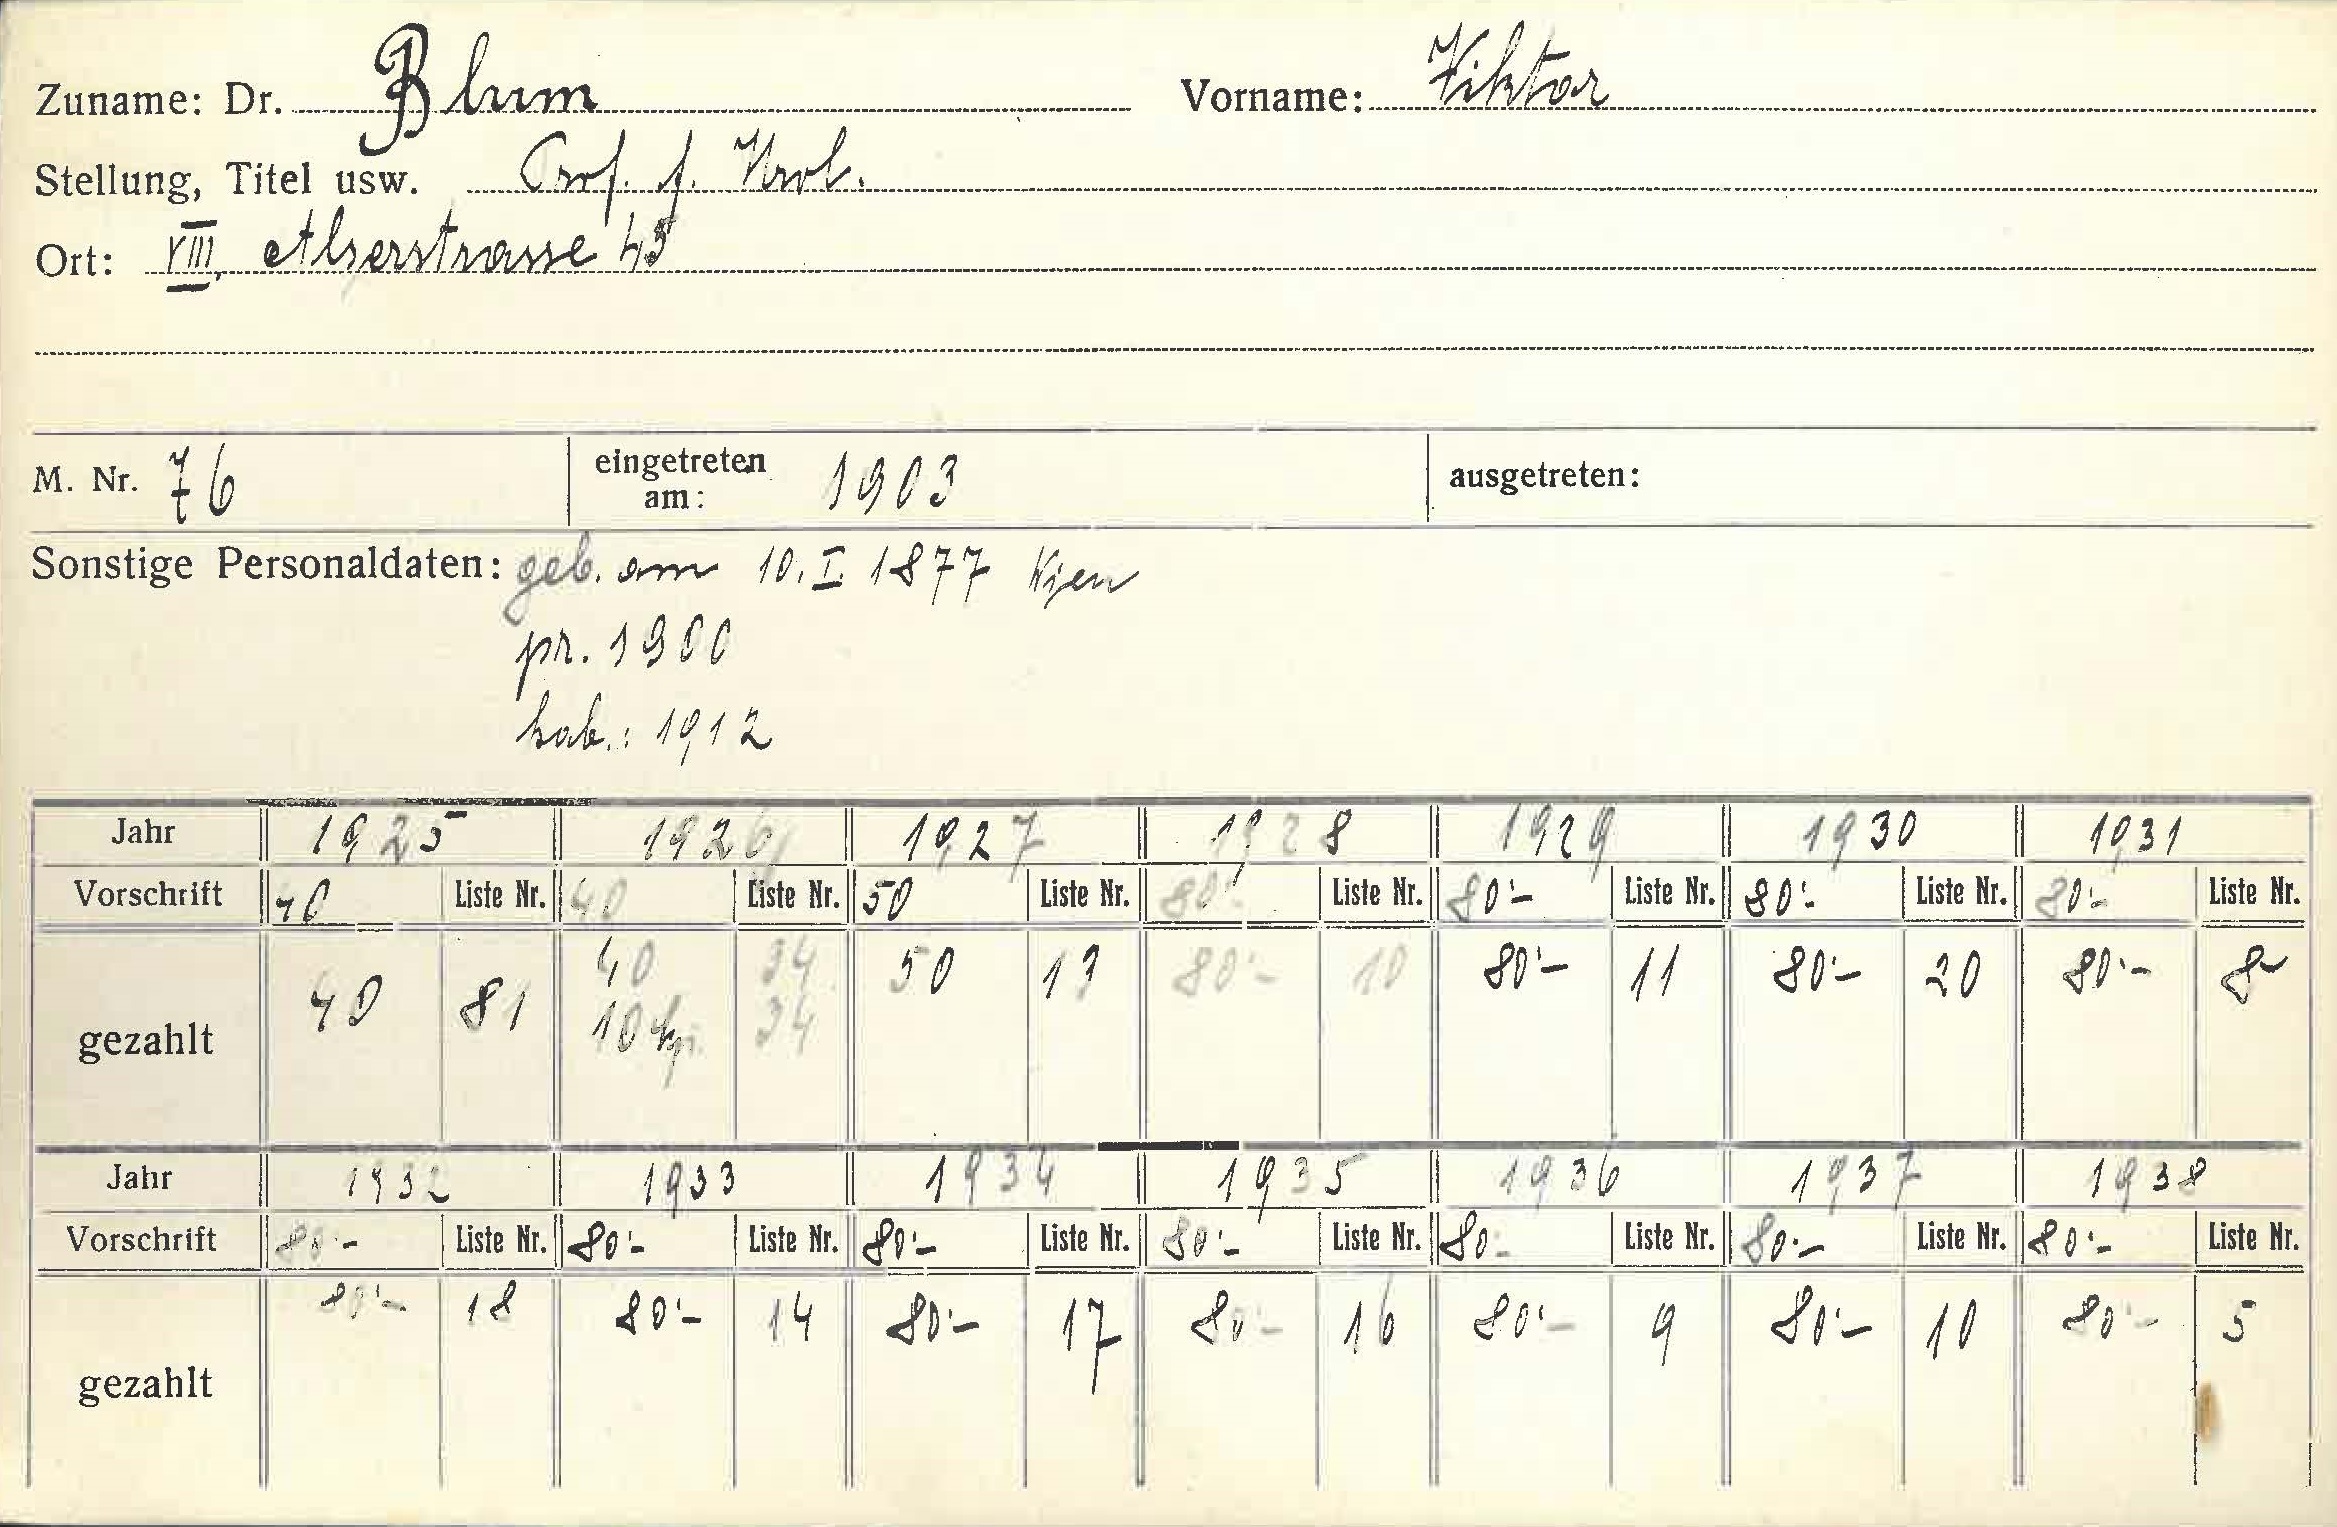 Zuname: Dr. Blum Vorname: Viktor
Stellung, Titel usw. Prof. f. Urol.
Ort: VIII, Alserstrasse 43
M. Nr. 76 eingetreten am: 1903 ausgetreten:
Sonstige Personaldaten: geb. am 10. I. 1877 Wien
pr. 1900
hab.: 1912
Jahr 1925 1926 1927 1928 1929 1930 1931
Vorschrift 40 Liste Nr. 40 Liste Nr. 50 Liste Nr. 80'- Liste Nr. 80'- Liste Nr. 80'- Liste Nr. 80'- Liste Nr.
gezahlt 40 81 40 34 50 13 80'- 10 80'- 11 80'- 20 80'- 8
10 34
Jahr 1932 1933 1934 1935 1936 1937 1938
Vorschrift 80'- Liste Nr. 80'- Liste Nr. 80'- Liste Nr. 80'- Liste Nr. 80- Liste Nr. 80'- Liste Nr. 80'- Liste Nr.
gezahlt 80'- 18 80'- 14 80'- 17 80'- 16 80'- 9 80'- 10 80'- 5